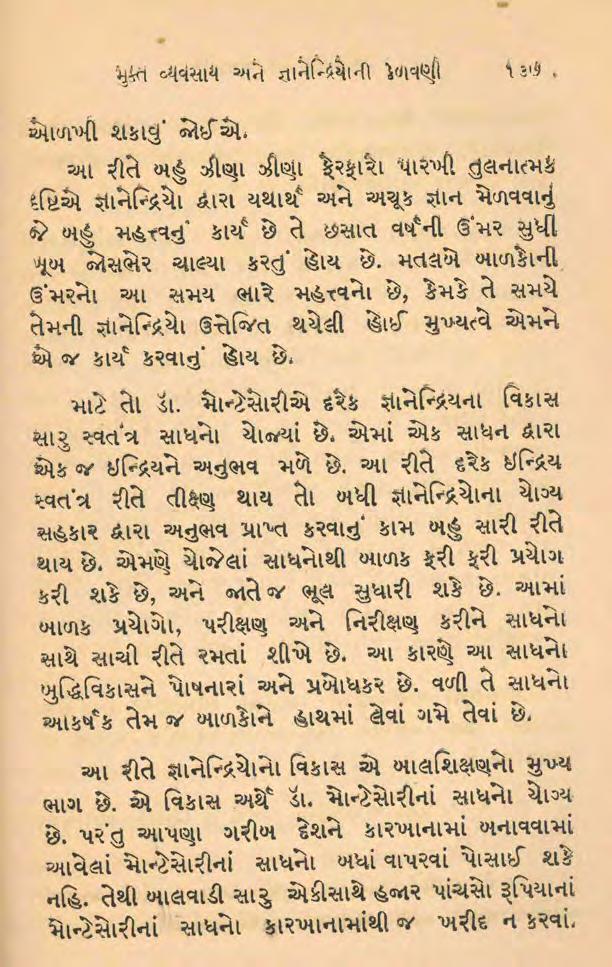 મુક્ત વ્યવસાય અને જ્ઞાનેન્દ્રિયોની કેળવણી ૧૩૭
ઓળખી શકાવું જોઈએ.
આ રીતે બહુ ઝીણા ઝીણા ફેરફારો પારખી તુલનાત્મક
દૃષ્ટિએ જ્ઞાનેન્દ્રિયો દ્વારા યથાર્થ અને અચૂક જ્ઞાન મેળવવાનું
જે બહુ મહત્ત્વનું કાર્ય છે તે છસાત વર્ષની ઉંમર સુધી
ખૂબ જોસભેર ચાલ્યા કરતું હોય છે. મતલબે બાળકોની
ઉંમરનો આ સમય ભારે મહત્ત્વનો છે, કેમકે તે સમયે
તેમની જ્ઞાનેન્દ્રિયો ઉત્તેજિત થયેલી હોઈ મુખ્યત્વે એમને
એ જ કાર્ય કરવાનું હોય છે.
માટે તો ડૉ. મોન્ટેસોરીએ દરેક જ્ઞાનેન્દ્રિયના વિકાસ
સારુ સ્વતંત્ર સાધનો યોજ્યાં છે. એમાં એક સાધન દ્વારા
એક જ ઇન્દ્રિયને અનુભવ મળે છે. આ રીતે દરેક ઇન્દ્રિય
સ્વતંત્ર રીતે તીક્ષ્ણ થાય તો બધી જ્ઞાનેન્દ્રિયોના યોગ્ય
સહકાર દ્વારા અનુભવ પ્રાપ્ત કરવાનું કામ બહુ સારી રીતે
થાય છે. એમણે યોજેલાં સાધનોથી બાળક ફરી ફરી પ્રયોગ
કરી શકે છે, અને જાતે જ ભૂલ સુધારી શકે છે. આમાં
બાળક પ્રયોગો, પરીક્ષણ અને નિરીક્ષણ કરીને સાધનો
સાથે સાચી રીતે રમતાં શીખે છે. આ કારણે આ સાધનો
બુદ્ધિવિકાસને પોષનારાં અને પ્રબોધકર છે. વળી તે સાધનો
આકર્ષક તેમ જ બાળકોને હાથમાં લેવાં ગમે તેવાં છે.
આ રીતે જ્ઞાનેન્દ્રિયોનો વિકાસ એ બાલશિક્ષણનો મુખ્ય
ભાગ છે. એ વિકાસ અર્થે ડૉ. મોન્ટેસોરીનાં સાધનો યોગ્ય
છે. પરંતુ આપણા ગરીબ દેશને કારખાનામાં બનાવવામાં
આવેલાં મોન્ટેસોરીનાં સાધનો બધાં વાપરવાં પોસાઈ શકે
નહિ. તેથી બાલવાડી સારુ એકીસાથે હજાર પાંચસો રૂપિયાનાં
મોન્ટેસોરીનાં સાધનો કારખાનામાંથી જ ખરીદ ન કરવાં.